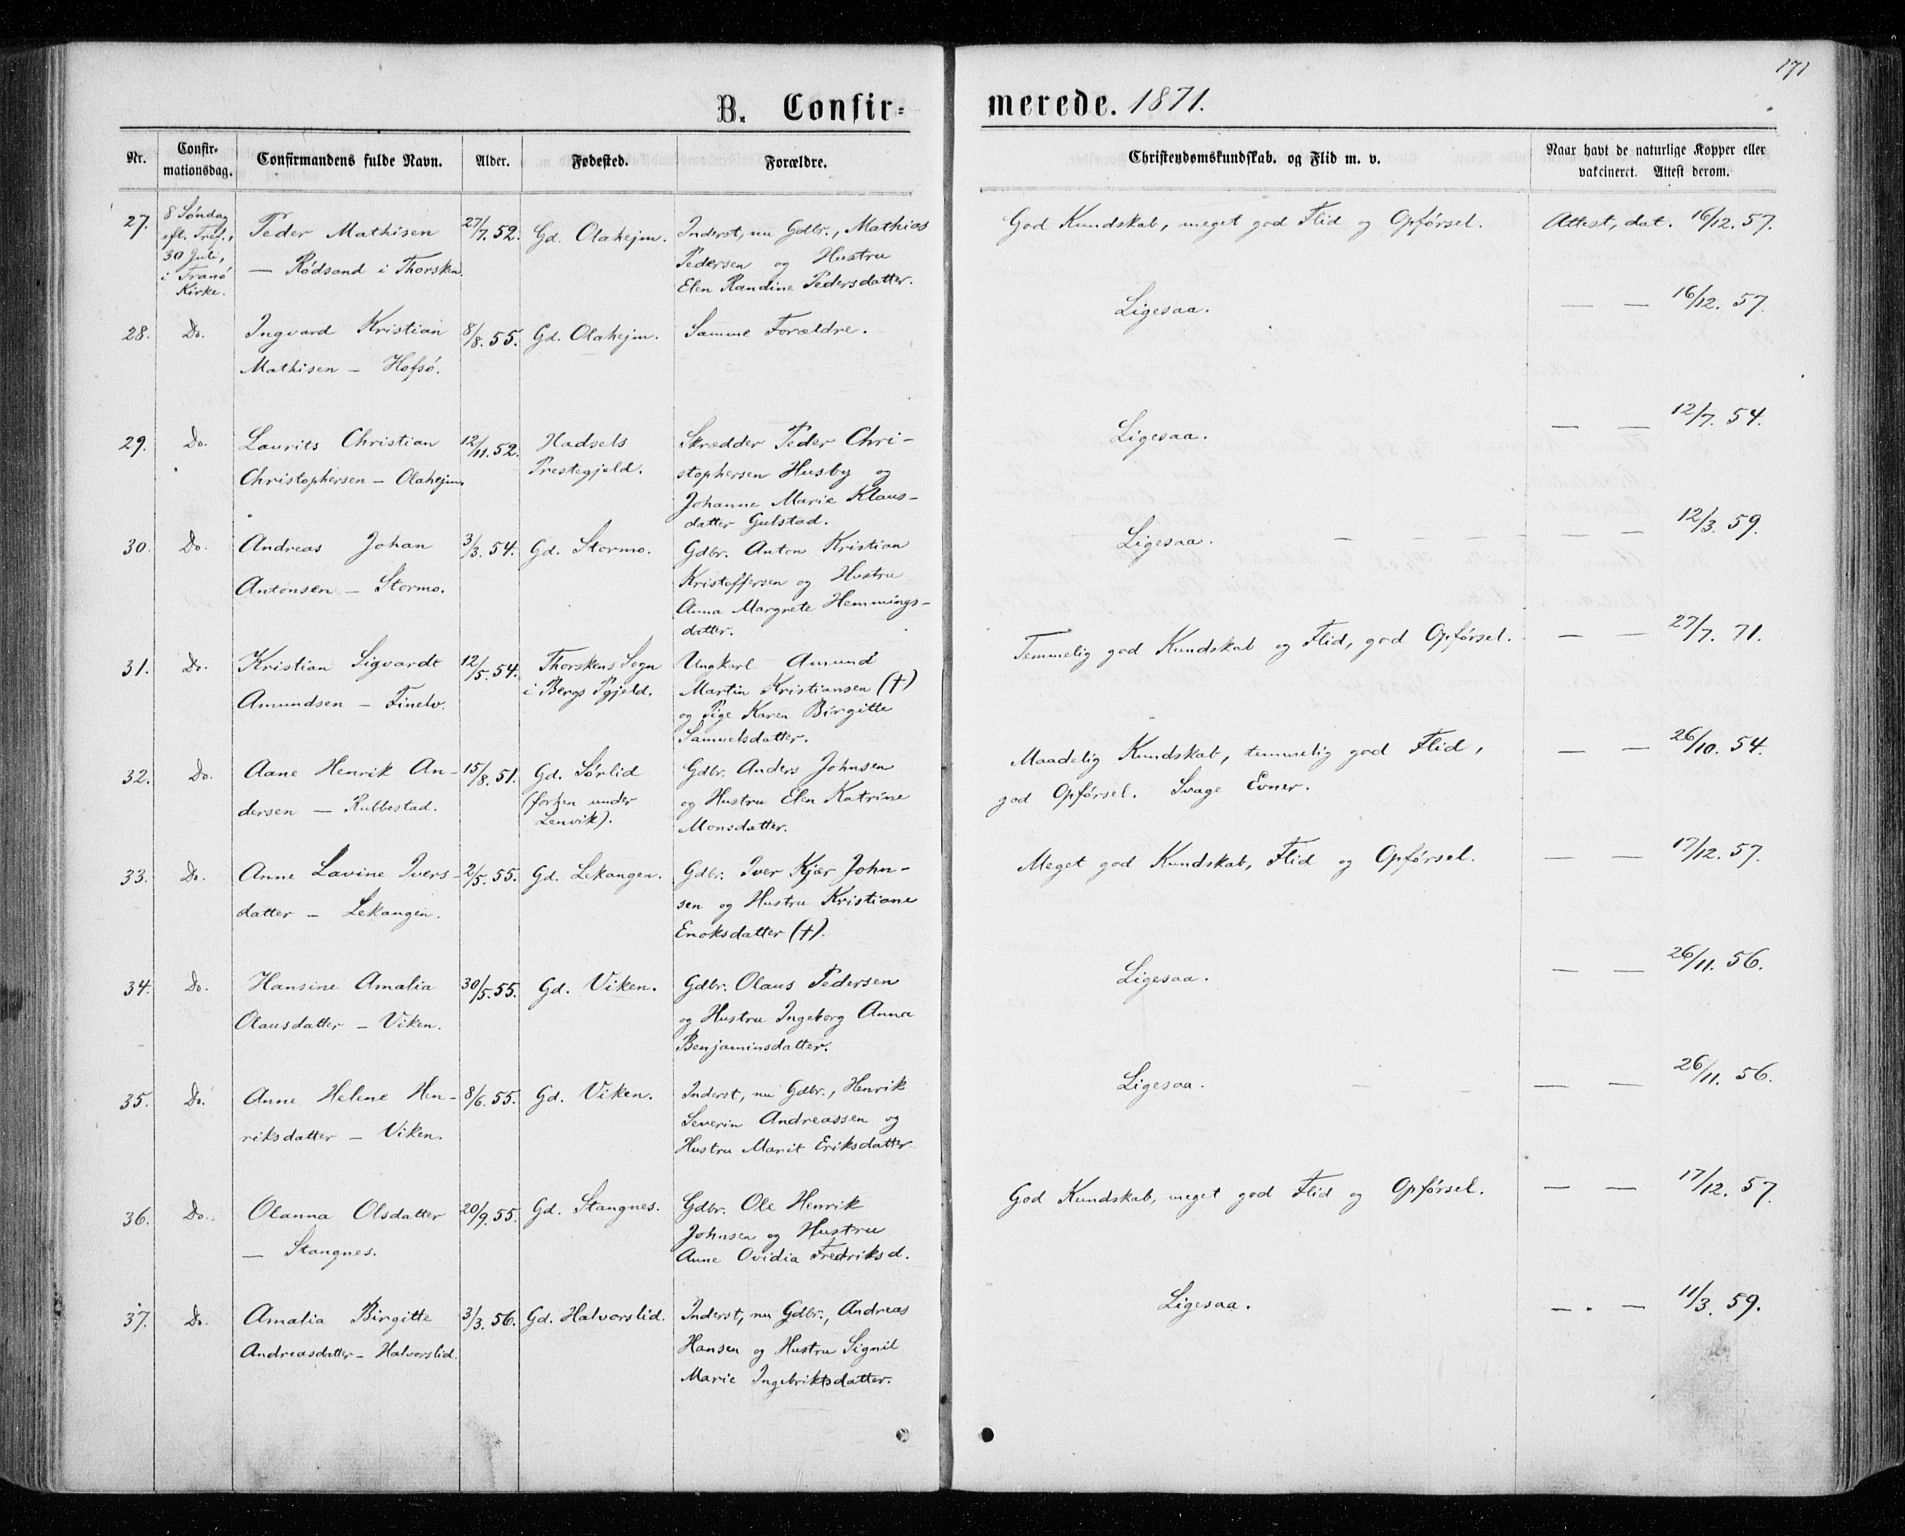 171
B. Confir-
merede. 1871.
Nr.
Confir-
mationsdag.
Confirmandens fulde Navn.
Alder.
Fødested.
Forældre.
Christendomskundskab. og Flid m. v.
Naar havt de naturlige Kopper eller
vakcineret. Attest derom.
27.
8 Søndag
eft. Tref.,
30 Juli,
i Tranø
Kirke.
Peder Mathisen
— Rödsand i Thorsken
27/7. 52.
Gd. Olahejm.
Inderst, nu Gdbr., Mathias
Pedersen og Hustru
Elen Randine Pedersdatter.
God Kundskab, meget god Flid og Opførsel.
Attest, dat. 16/12. 57.
28.
Do.
Ingvard Kristian
Mathisen — Hofsö.
8/8. 55.
Gd. Olahejm.
Samme Forældre.
Ligesaa.
— — 16/12. 57.
29.
Do.
Laurits Christian
Christophersen — Olahejm.
12/11. 52.
Hadsels
Prestegjeld.
Skrædder Peder Chri-
stophersen Husby og
Johanne Marie Klaus-
datter Gulstad.
Ligesaa.
— — 12/7. 54.
30.
Do.
Andreas Johan
Antonsen — Stormo.
3/3. 54.
Gd. Stormo.
Gdbr. Anton Kristian
Kristoffersen og Hustru
Anna Margrete Hemmings-
datter.
Ligesaa.
— — 12/3. 59.
31.
Do.
Kristian Sigvardt
Amundsen — Finelv.
12/5. 54.
Thorskens Sogn
i Bergs Pgjeld.
Ungkarl Amund
Martin Kristiansen (†)
og Pige Karen Birgitte
Samuelsdatter.
Temmelig god Kundskab og Flid, god Opførsel.
— — 27/7. 71.
32.
Do.
Aane Henrik An-
dersen — Rubbestad.
15/8. 51.
Gd. Sørlid
(forhen under
Lenvik).
Gdbr. Anders Johnsen
og Hustru Elen Katrine
Monsdatter.
Maadelig Kundskab, temmelig god Flid,
god Opførsel. Svage Evner.
— — 26/10. 54.
33.
Do.
Anne Lavine Ivers-
datter — Lekangen.
2/5. 55.
Gd. Lekangen.
Gdbr. Iver Kjær John-
sen og Hustru Kristiane
Enoksdatter (†).
Meget god Kundskab, Flid og Opførsel.
— — 17/12. 57.
34.
Do.
Hansine Amalia
Olausdatter — Viken.
30/5. 55.
Gd. Viken.
Gdbr. Olaus Pedersen
og Hustru Ingeborg Anna
Benjaminsdatter.
Ligesaa.
— — 26/11. 56.
35.
Do.
Anne Helene Hen-
riksdatter — Viken.
8/6. 55.
Gd. Viken.
Inderst, nu Gdbr., Henrik
Severin Andreassen og
Hustru Marit Eriksdatter
Ligesaa.
— — 26/11. 56.
36.
Do.
Olanna Olsdatter
— Stangnes.
20/9. 55.
Gd. Stangnes.
Gdbr. Ole Henrik
Johnsen og Hustru
Anne Ovidia Fredriksd.
God Kundskab, meget god Flid og Opførsel.
— — 17/12. 57.
37.
Do.
Amalia Birgitte
Andreasdatter — Halvorslid.
3/3. 56.
Gd. Halvorslid.
Inderst, nu Gdbr., Andreas
Hansen og Hustru Signil
Marie Ingebriktsdatter.
Ligesaa.
— — 11/3. 59.